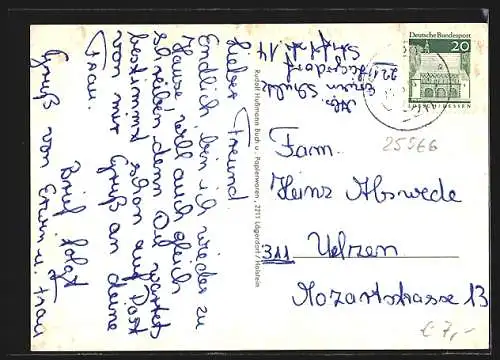 Lieber Freund.
Endlich bin ich wieder zu
Hause, will auch gleich
schreiben denn Du wartest
bestimmt schon auf Post
von mir Gruß an deine
Frau.
Brief folgt
Gruß von Erwin u. Frau
Rudolf Hußmann Buch u. Papierwaren, 2211 Lägerdorf / Holstein
Abs.
Erwin Schulz
2211 Lägerdorf
14
Deutsche Bundespost
20
LORSCH/HESSEN
25566
Fam.
Heinz Abswede
311 Uelzen
Mozartstrasse 13
€ 7,-